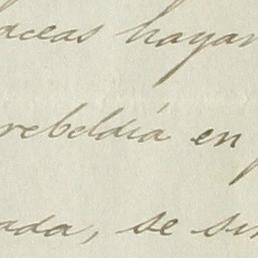 aceas hayan
rebeldía en
ada, se